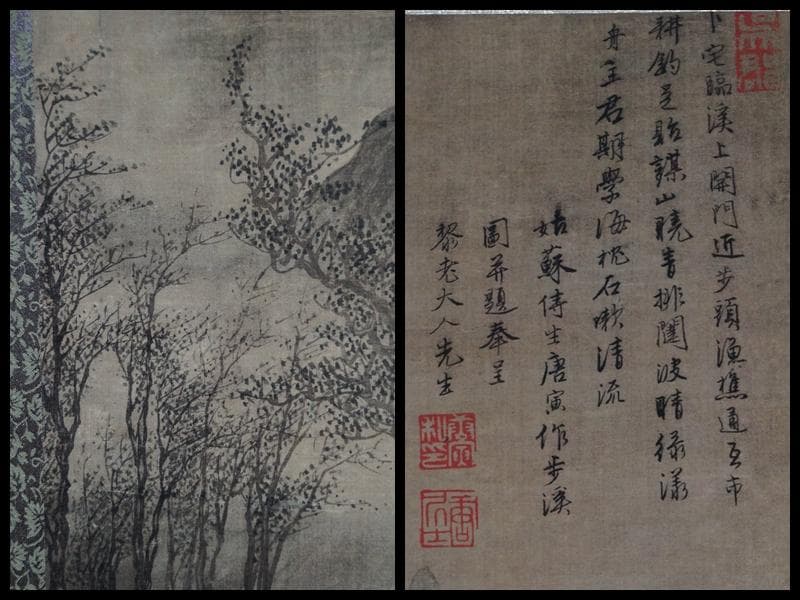 卜宅臨溪上開門近步頭漁樵通互市
耕釣足貽謀山曉青排闥波晴綠漾
舟主君期學海枕石漱清流
姑蘇侍生唐寅作步溪
圖并題奉呈
黎老大人先生